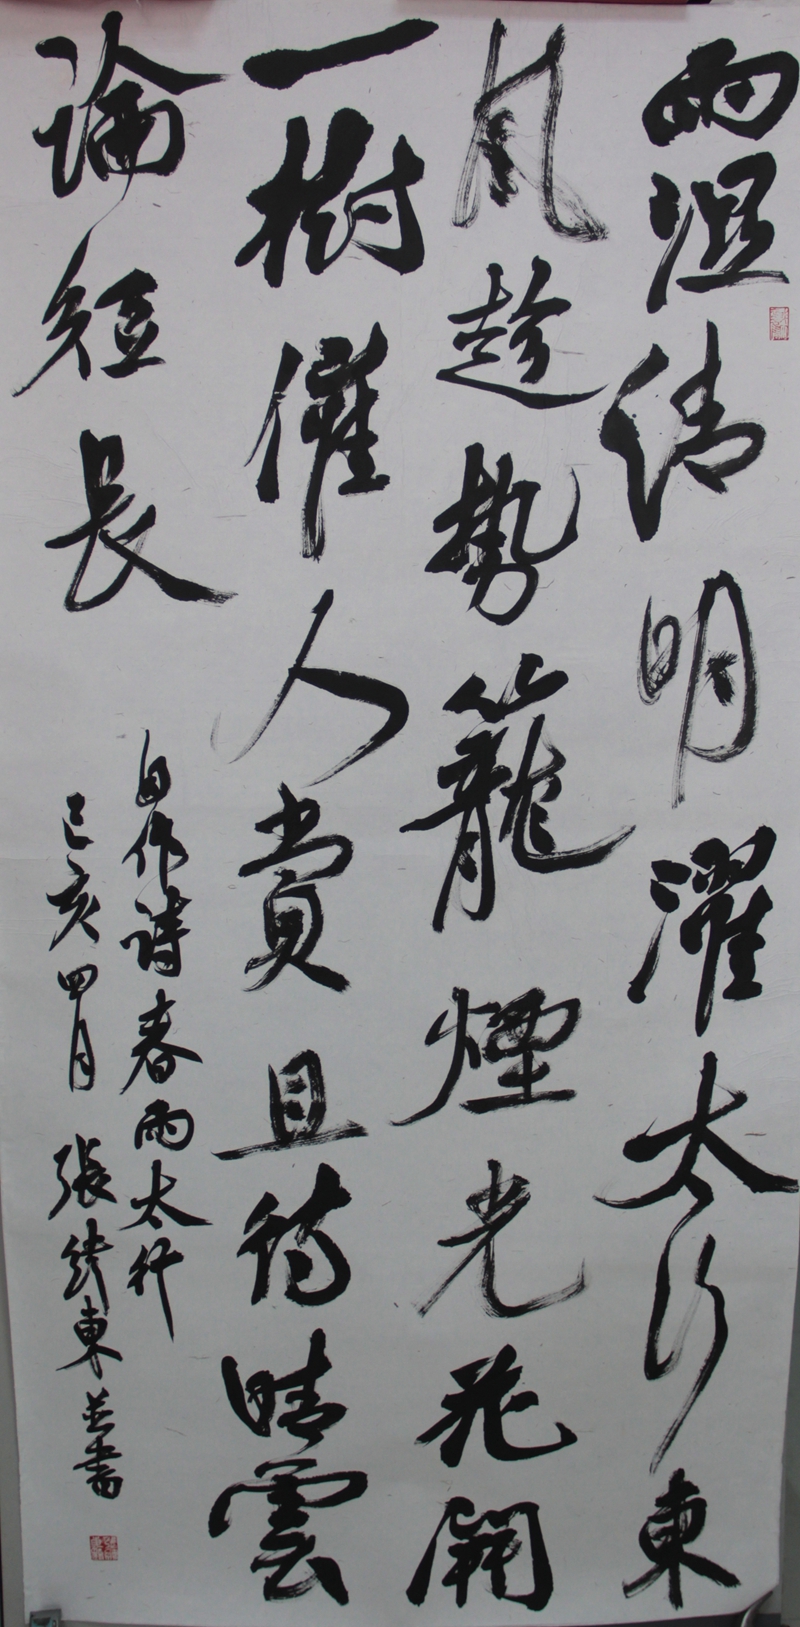 雨湿清明濯太行東
風趁勢籠煙光花開
一樹催人賞且待晴雲
論短長
自作詩春雨太行
己亥四月張東並書